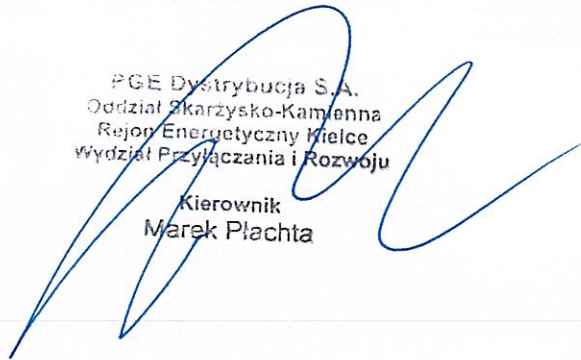 PGE Dystrybucja S.A.
Oddział Skarżysko-Kamienna
Rejon Energetyczny Kielce
Wydział Przyłączania i Rozwoju
Kierownik
Marek Płachta